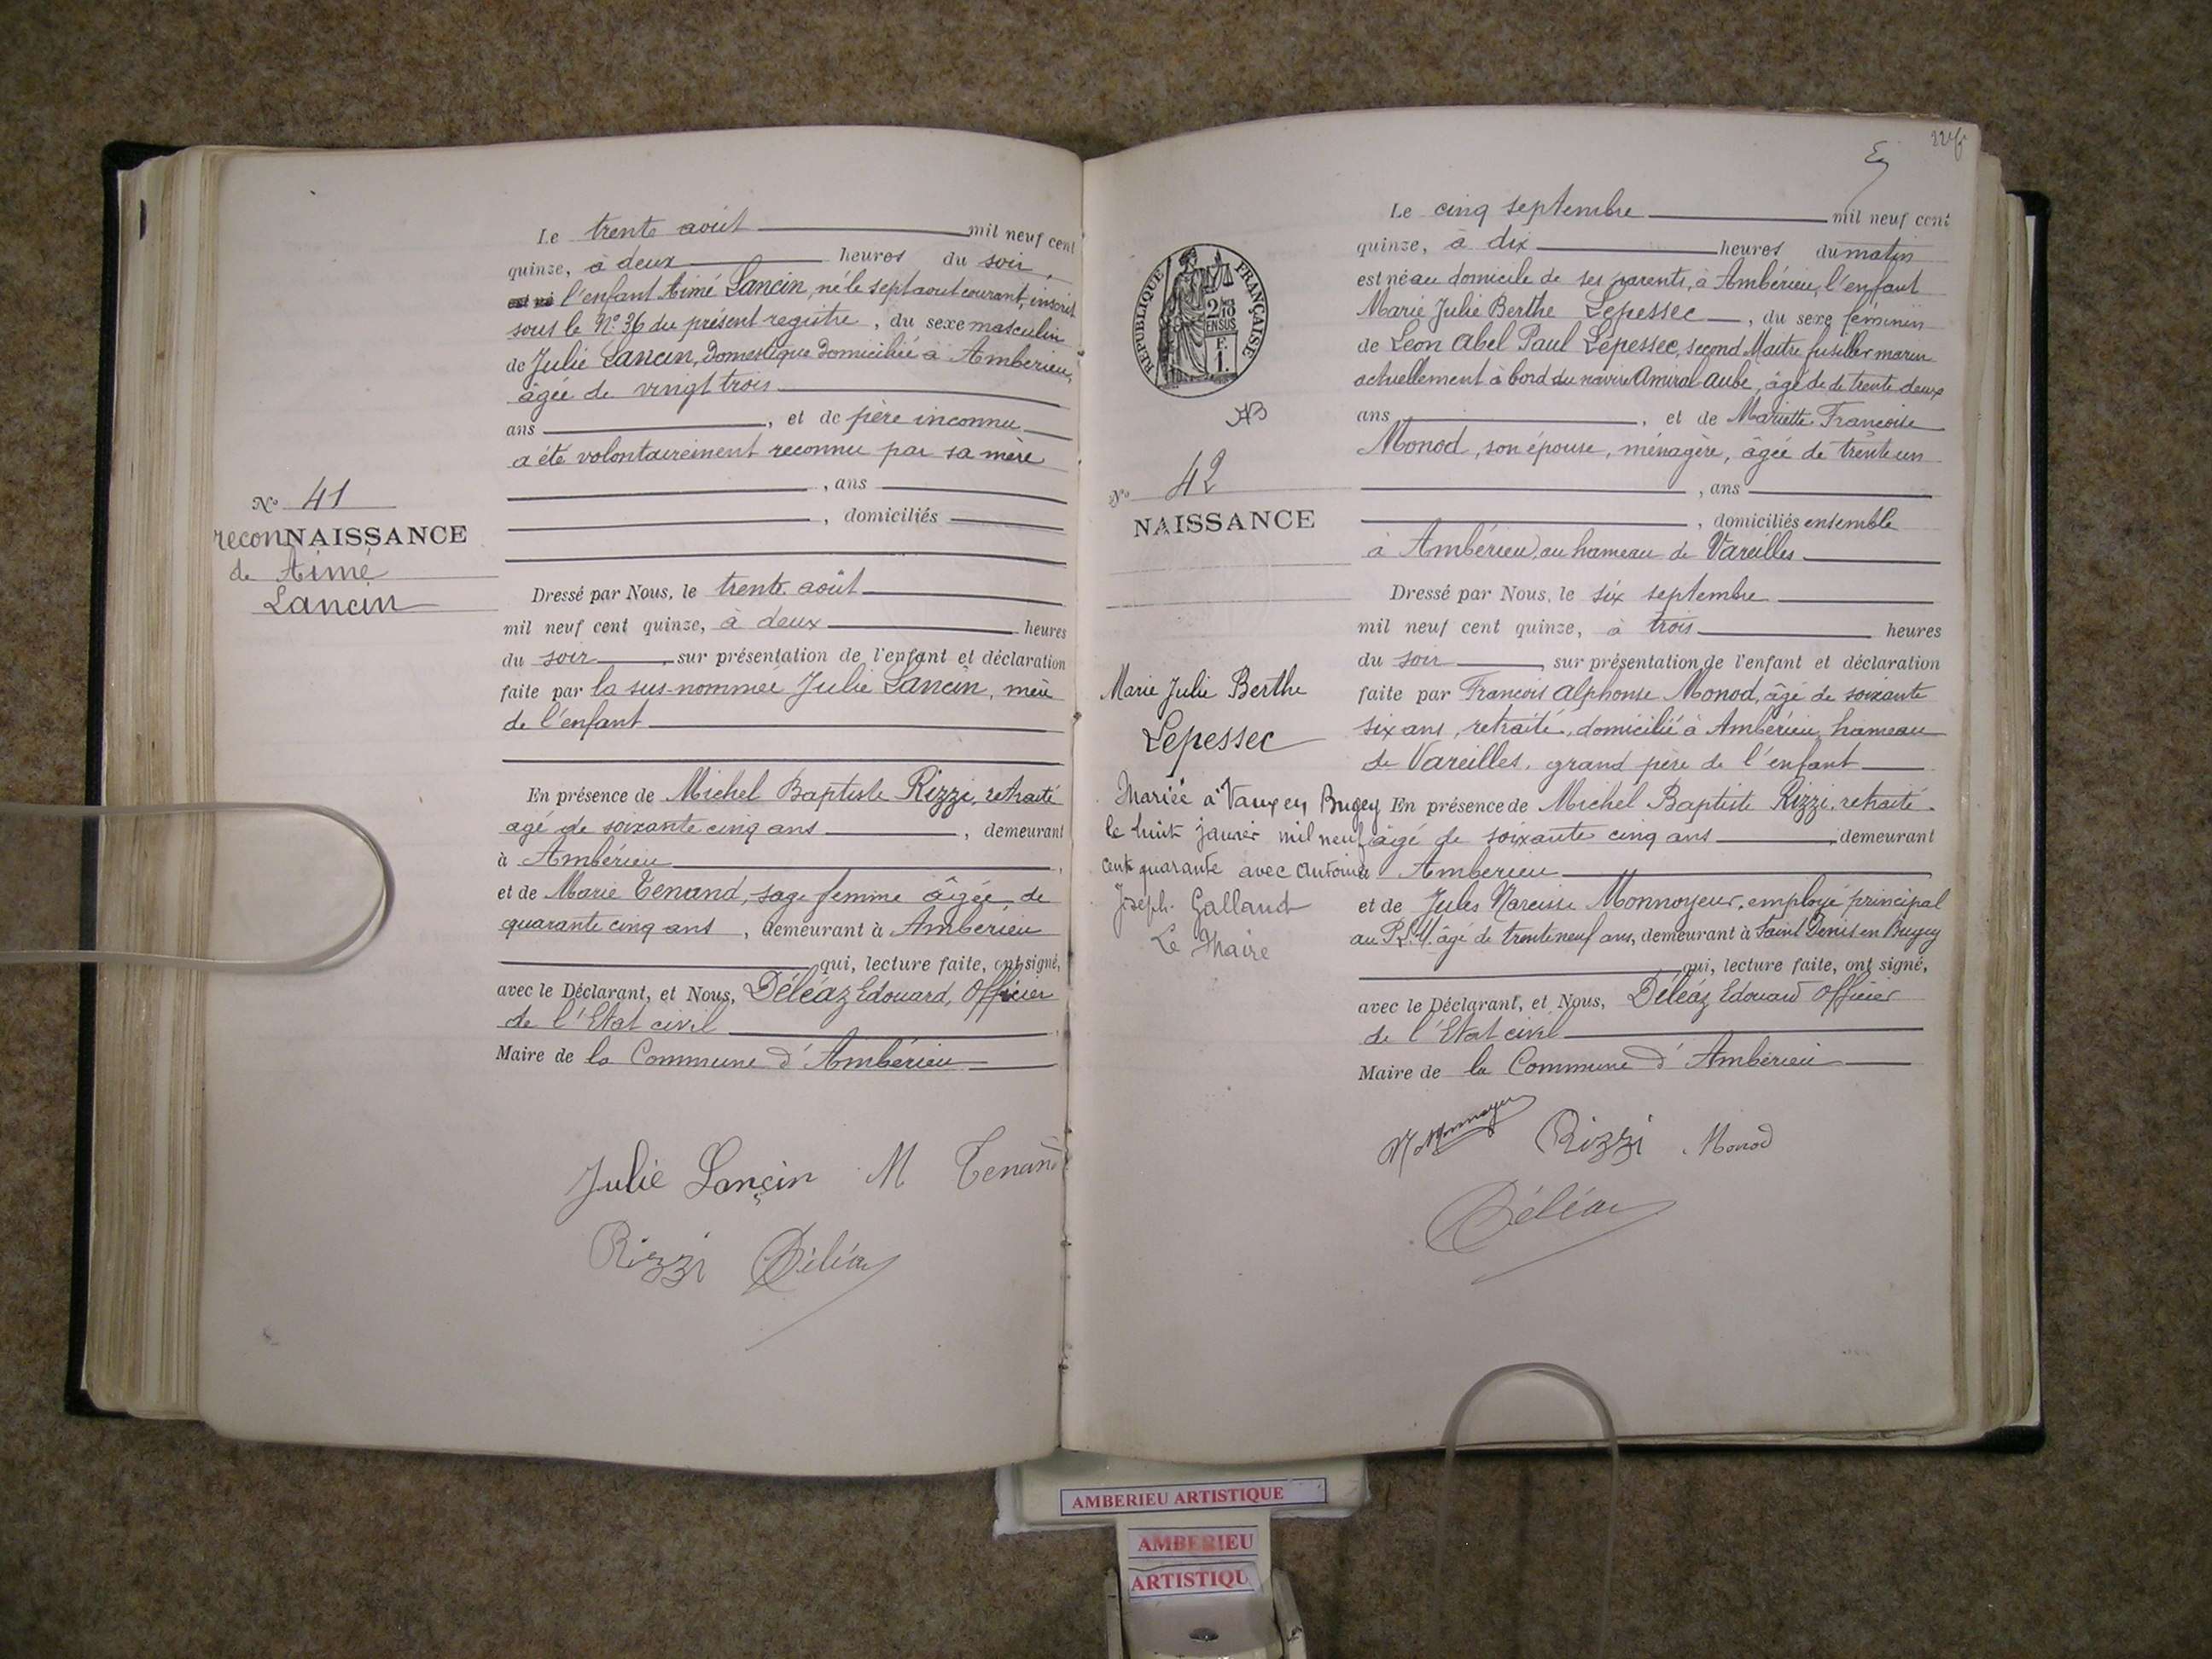 Le trente août mil neuf cent
quinze, à deux heures du soir,
est né l'enfant Aimé Lancin, né le sept aout courant, inscrit
sous le N° 36 du présent registre, du sexe masculin
de Julie Lancin, Domestique domiciliée à Ambérieu,
âgée de vingt trois
ans, et de père inconnu
a été volontairement reconnu par sa mère
, ans
, domiciliés
N° 41
reconNAISSANCE
de Aimé
Lancin
Dressé par Nous, le trente août
mil neuf cent quinze, à deux heures
du soir, sur présentation de l'enfant et déclaration
faite par la sus-nommée Julie Lancin, mère
de l'enfant
En présence de Michel Baptiste Rizzi, retraité
agé de soixante cinq ans, demeurant
à Ambérieu,
et de Marie Tenand, sage femme âgée de
quarante cinq ans, demeurant à Ambérieu
qui, lecture faite, ont signé,
avec le Déclarant, et Nous, Déléaz Edouard, Officier
de l'Etat civil,
Maire de la Commune d'Ambérieu
Julie Lançin M Tenand
Rizzi Déléaz
Le cinq septembre mil neuf cent
quinze, à dix heures du matin
est né au domicile de ses parents, à Ambérieu, l'enfant
Marie Julie Berthe Lepessec, du sexe féminin
de Léon Abel Paul Lépessec, second Maître fusilier marin
actuellement à bord du navire Amiral Aube, âgé de de trente deux
ans, et de Mariette Françoise
Monod, son épouse, ménagère, âgée de trente un
, ans
, domiciliés ensemble
à Ambérieu, au hameau de Vareilles
RÉPUBLIQUE FRANÇAISE
2/10 EN SUS
F. 1.
N° 42
NAISSANCE
Marie Julie Berthe
Lepessec
Mariée à Vaux en Bugey
le huit janvier mil neuf
cent quarante avec Antoine
Joseph Galland
Le Maire
Dressé par Nous, le six septembre
mil neuf cent quinze, à trois heures
du soir, sur présentation de l'enfant et déclaration
faite par François Alphonse Monod, âgé de soixante
six ans, retraité, domicilié à Ambérieu, hameau
de Vareilles, grand père de l'enfant
En présence de Michel Baptiste Rizzi, retraité
âgé de soixante cinq ans, demeurant
Ambérieu
et de Jules Narcisse Monnoyeur, employé principal
au P.L.M. âgé de trente neuf ans, demeurant à Saint Denis en Bugey
qui, lecture faite, ont signé,
avec le Déclarant, et Nous, Déléaz Edouard Officier
de l'Etat civil
Maire de la Commune d'Ambérieu
Monnoyeur Rizzi Monod
Déléaz
AMBERIEU ARTISTIQUE
AMBERIEU
ARTISTIQU